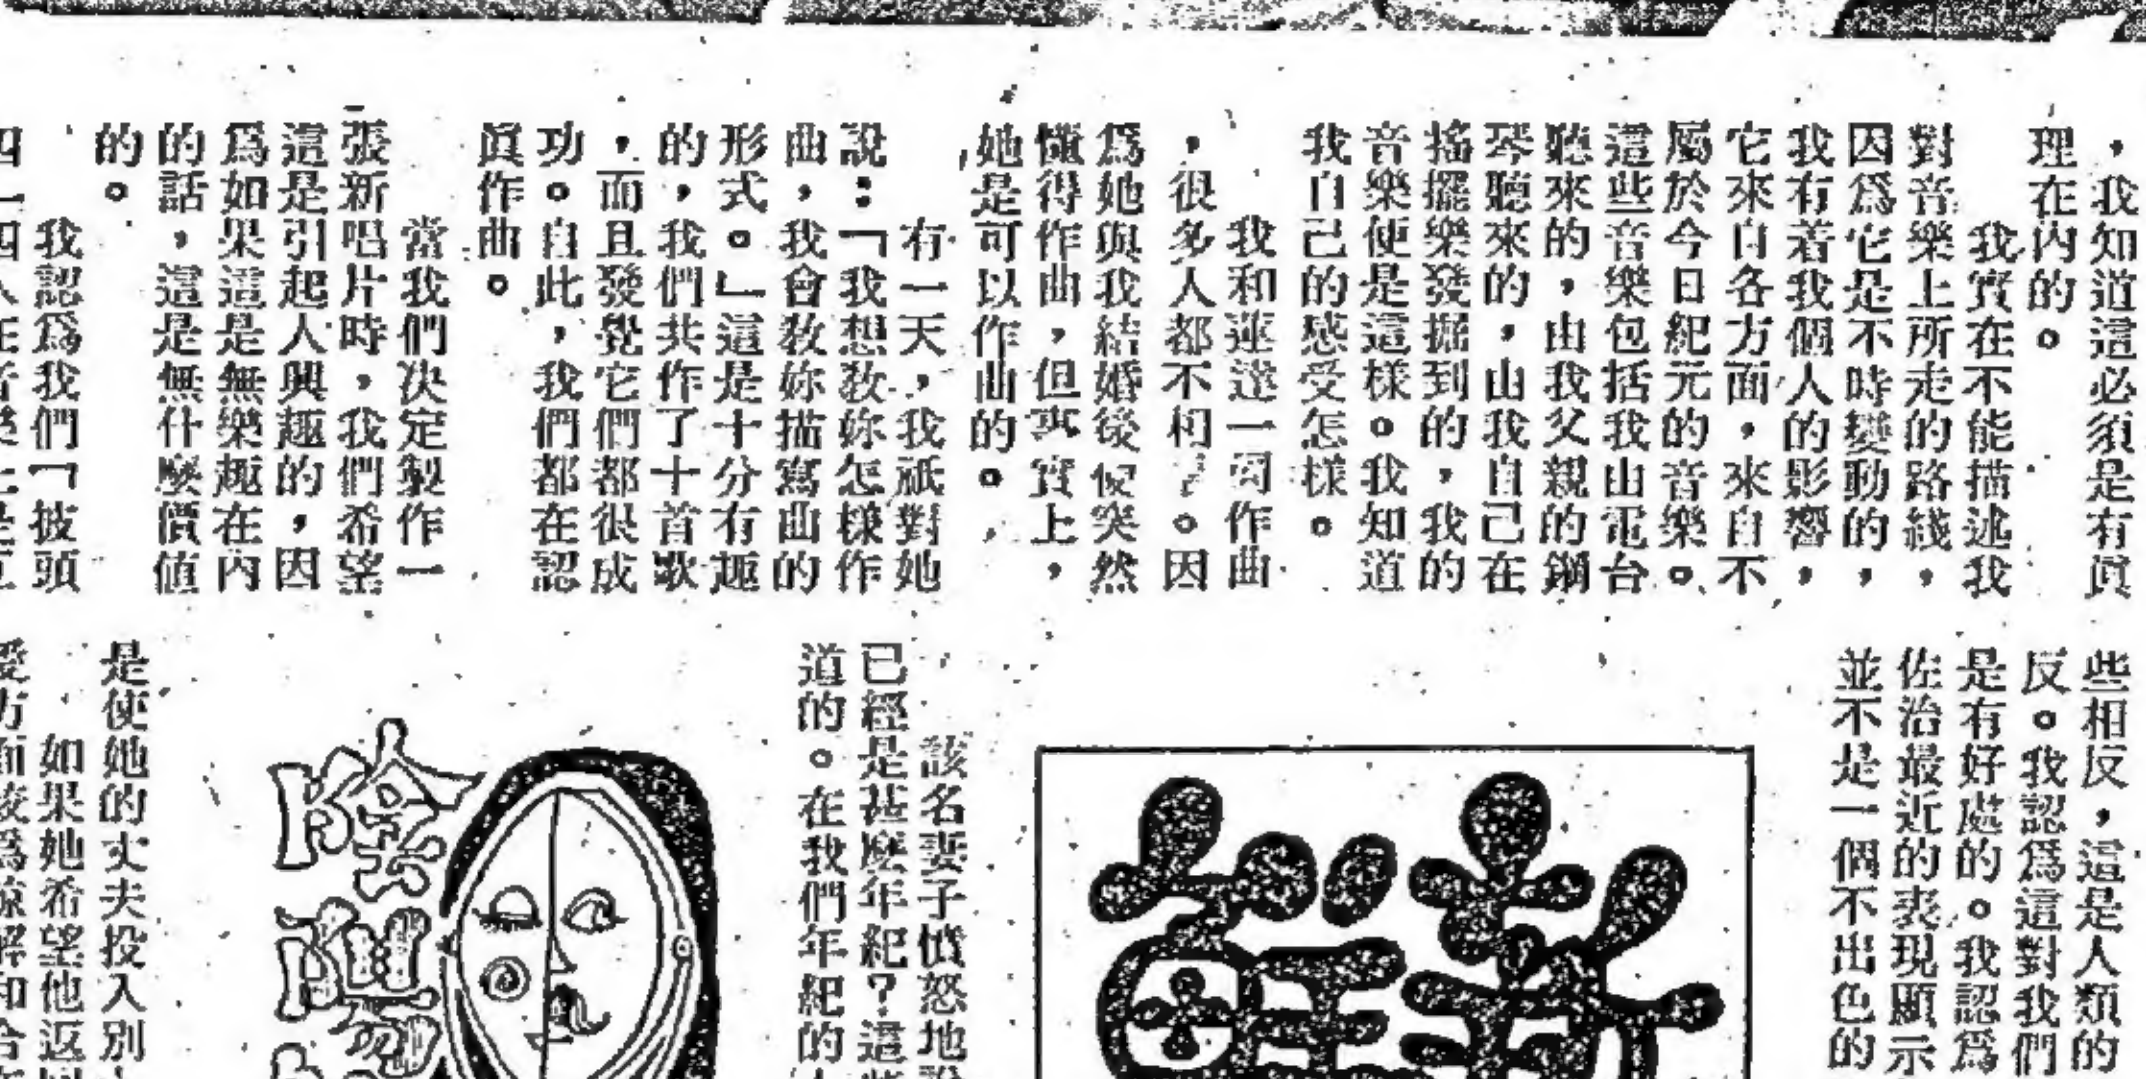 ，我知道這必須是有眞
理在內的。
我實在不能描述我
對音樂上所走的路綫，
因爲它是不時變動的，
我有着我個人的影響，
它來自各方面，來自不
屬於今日紀元的音樂。
這些音樂包括我由電台
聽來的，由我父親的鋼
琴聽來的，由我自己在
搖擺樂發掘到的，我的
音樂便是這樣。我知道
我自己的感受怎樣。
我和蓮達一同作曲
，很多人都不相。因
爲她與我結婚後便突然
懂得作曲，但事實上，
她是可以作曲的。
有一天，我祇對她
說：「我想教妳怎樣作
曲，我會教妳描寫曲的
形式。」這是十分有趣
的，我們共作了十首歌
，而且發覺它們都很成
功。自此，我們都在認
眞作曲。
當我們決定製作一
張新唱片時，我們希望
這是引起人興趣的，因
爲如果這是無樂趣在內
的話，這是無什麼價值
的。
我認爲我們「披頭
些相反，這是人類的
反。我認爲這對我們
是有好處的。我認爲
佐治最近的表現顯示
並不是一個不出色的
該名妻子憤怒地
已經是甚麼年紀？這
道的。在我們年紀的
是使她的丈夫投入別
如果她希望他返